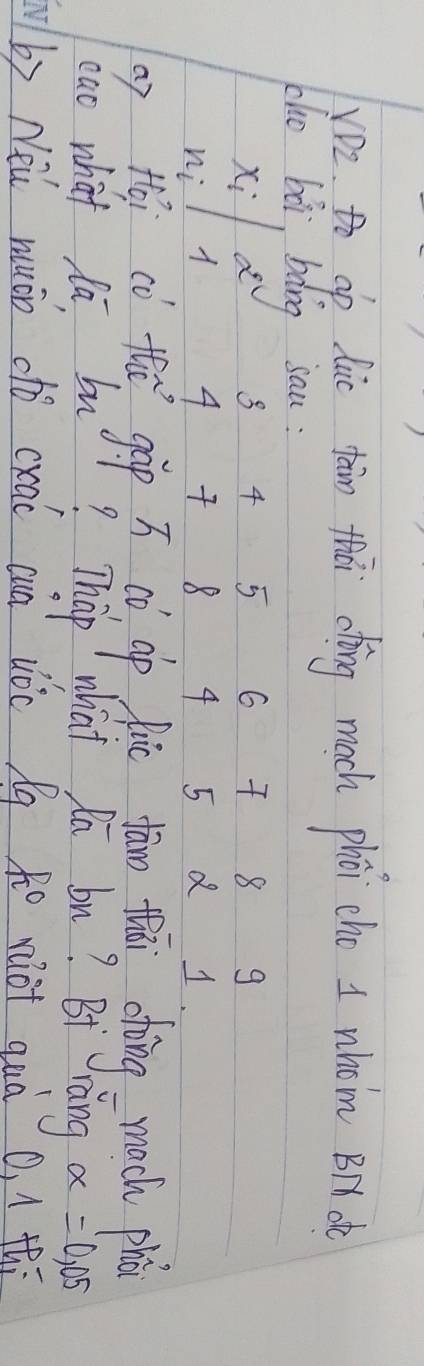 VD2. Đo áp lực tâm thời động mạch phổi cho 1 nhóm BN đc
cho bởi bảng sau:
xi | 2 3 4 5 6 7 8 9
ni | 1 4 7 8 4 5 2 1.
a> Hỏi có thể gặp có áp lực tâm thời động mạch phổi
cao nhất là bn? Thấp nhất là bn? Bt rằng α = 0,05
b> Nếu muốn độ cxác của ước lg ko vượt quá 0,1 thì